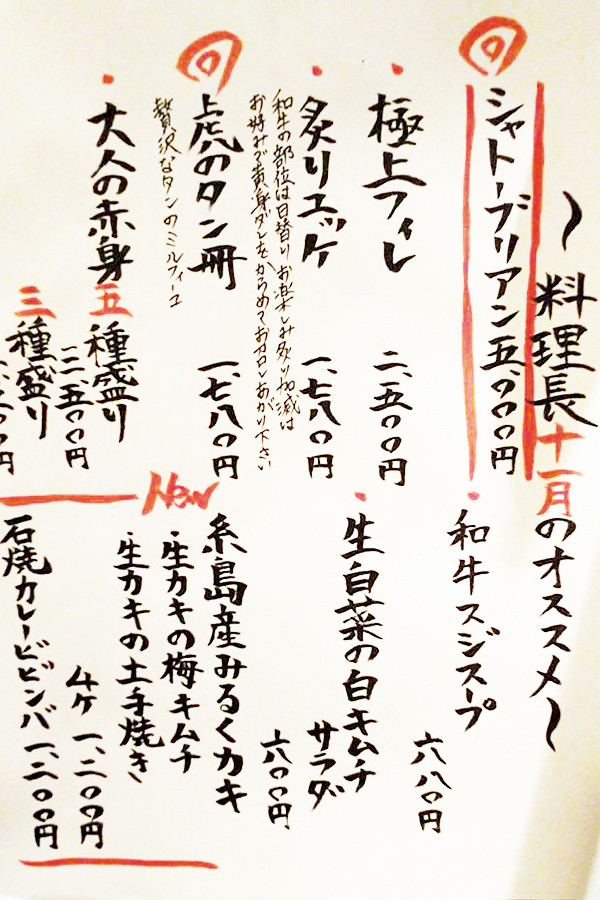 〜料理長十一月のオススメ〜
シャトーブリアン五、〇〇〇円
極上フィレ 二、五〇〇円
炙りユッケ 一、七八〇円
和牛の部位は日替り お楽しみ炙り加減は
お好みで黄身ダレをからめてお召し上がり下さい
上虎のタン冊 一、七八〇円
贅沢なタンのミルフィーユ
大人の赤身
五種盛り
三種盛り
和牛スジスープ 六八〇円
生白菜の白キムチ
サラダ
六〇〇円
New
糸島産みるくカキ
・生カキの梅キムチ
・生カキの土手焼き
4ケ 一、二〇〇円
石焼カレービビンバ 一、二〇〇円